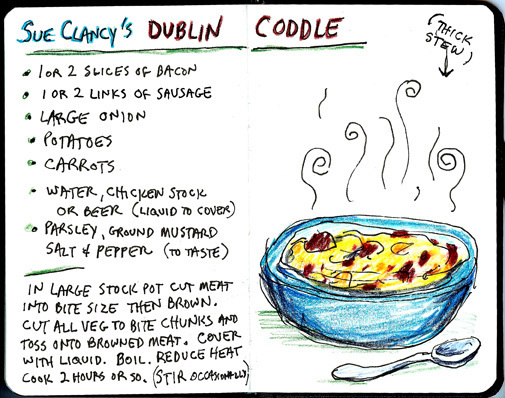 Sue Clancy's Dublin Coddle
(Thick
Stew)
1 or 2 slices of bacon
1 or 2 links of sausage
Large onion
Potatoes
Carrots
Water, chicken stock
or beer (liquid to cover)
Parsley, ground mustard
salt & pepper (to taste)
In large stock pot cut meat
into bite size then brown.
Cut all veg to bite chunks and
toss onto browned meat. Cover
with liquid. Boil. Reduce heat
cook 2 hours or so. (Stir occasionally)